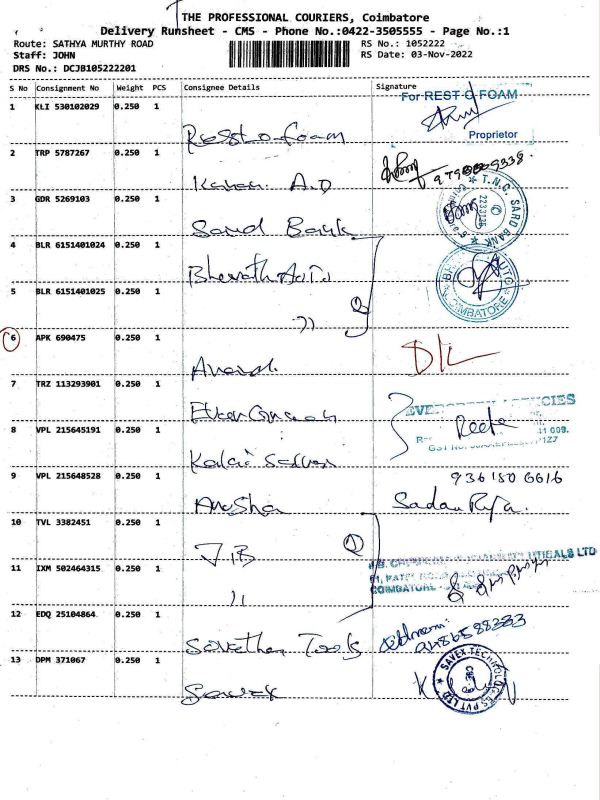 THE PROFESSIONAL COURIERS, Coimbatore
Delivery Runsheet - CMS - Phone No.:0422-3505555 - Page No.:1
Route: SATHYA MURTHY ROAD
RS No.: 1052222
Staff: JOHN
RS Date: 03-Nov-2022
DRS No.: DCJB105222201
S No Consignment No Weight PCS Consignee Details Signature
1 KLI 530102029 0.250 1
For REST O FOAM
Proprietor
Rest o foam
2 TRP 5787267 0.250 1
Kannan A.D
3 GDR 5269103 0.250 1
T.N.C. SARD BANK
Sard Bank
4 BLR 6151401024 0.250 1
Bharath Auto
5 BLR 6151401025 0.250 1
COIMBATORE
11 2
6 APK 690475 0.250 1
D/L
Anand
7 TRZ 113293901 0.250 1
EVERGREEN AGENCIES
Reeta
8 VPL 215645191 0.250 1
Kalai Selvan
9 VPL 215648528 0.250 1
936180 6616
Anusha
10 TVL 3382451 0.250 1
J.B 2
11 IXM 502464315 0.250 1
COIMBATORE
11
12 EDQ 25104864 0.250 1
9486588333
Tools
13 DPM 371067 0.250 1
SAVEX TECHNOLOGIES PVT LTD
Savex